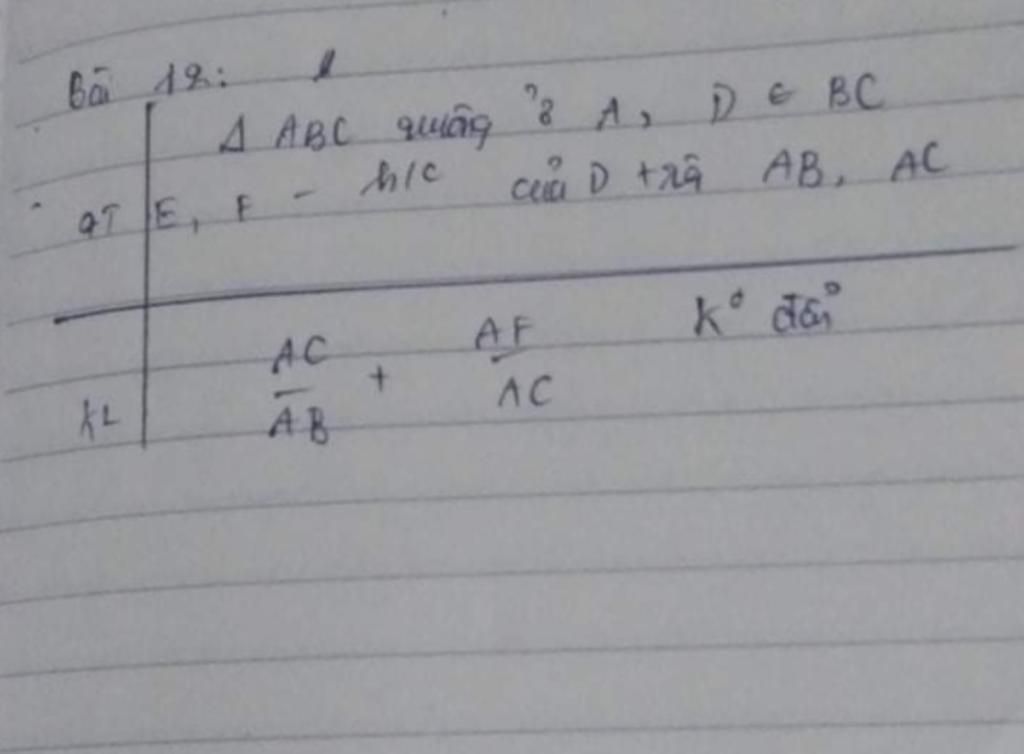 Bài 12:
Δ ABC vuông ở A, D ∈ BC
GT E, F - h/c của D trên AB, AC
KL AC/AB + AF/AC K° đổi